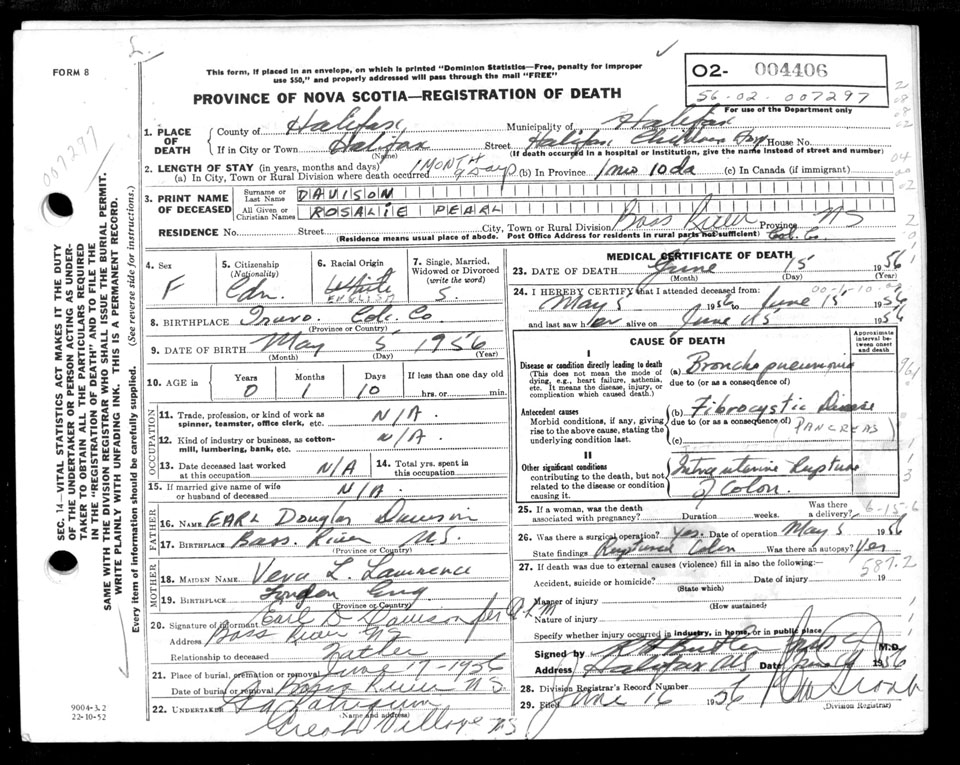 FORM 8
L.
This form, if placed in an envelope, on which is printed "Dominion Statistics—Free, penalty for improper
use $50," and properly addressed will pass through the mail "FREE"
PROVINCE OF NOVA SCOTIA—REGISTRATION OF DEATH
O2- 004406
56-02-007297
For use of the Department only
007297
1. PLACE OF DEATH
County of Halifax
Municipality of Halifax
If in City or Town Halifax
(Name)
Street Halifax Children Hosp. House No.
(If death occurred in a hospital or institution, give the name instead of street and number)
2. LENGTH OF STAY (in years, months and days)
(a) In City, Town or Rural Division where death occurred 1 MONTH 9 Days (b) In Province 1 mo 10 da (c) In Canada (if immigrant)
3. PRINT NAME OF DECEASED
Surname or Last Name DAVISON
All Given or Christian Names ROSALIE PEARL
RESIDENCE No. Street City, Town or Rural Division Bass River Province NS
(Residence means usual place of abode. Post Office Address for residents in rural parts not sufficient) Col. Co
4. Sex
F
5. Citizenship
(Nationality)
Cdn.
6. Racial Origin
White
ENGLISH
7. Single, Married, Widowed or Divorced
(write the word)
S.
8. BIRTHPLACE Truro. Col. Co
(Province or Country)
9. DATE OF BIRTH May 5 1956
(Month) (Day) (Year)
10. AGE in
Years Months Days If less than one day old
0 1 10 hrs. or min.
OCCUPATION
11. Trade, profession, or kind of work as spinner, teamster, office clerk, etc. N/A.
12. Kind of industry or business, as cotton-mill, lumbering, bank, etc. N/A.
13. Date deceased last worked at this occupation N/A
14. Total yrs. spent in this occupation
15. If married give name of wife or husband of deceased N/A.
FATHER
16. NAME EARL Douglas Davison
17. BIRTHPLACE Bass River N.S.
(Province or Country)
MOTHER
18. MAIDEN NAME Vera L. Lawrence
19. BIRTHPLACE London Eng
(Province or Country)
20. Signature of informant Earl D Davison per R.L.M
Address Bass River NS
Relationship to deceased Father
21. Place of burial, cremation or removal June 17-1956
Date of burial or removal Bass River N.S.
22. UNDERTAKER
(Name and address)
Great Village NS
MEDICAL CERTIFICATE OF DEATH
23. DATE OF DEATH June 15 1956
(Month) (Day)
24. I HEREBY CERTIFY that I attended deceased from
May 5 1956 to June 15 1956
and last saw her alive on June 15 1956
CAUSE OF DEATH
Approximate interval between onset and death
I
Disease or condition directly leading to death
(This does not mean the mode of dying, e.g., heart failure, asthenia, etc. It means the disease, injury, or complication which caused death.)
(a) Bronchopneumonia
due to (or as a consequence of)
Antecedent causes
Morbid conditions, if any, giving rise to the above cause, stating the underlying condition last.
(b) Fibrocystic Disease
due to (or as a consequence of)
(PANCREAS)
(c)
II
Other significant conditions
contributing to the death, but not related to the disease or condition causing it.
Intrauterine Rupture
of Colon.
25. If a woman, was the death associated with pregnancy? Duration weeks. Was there a delivery?
6-15-6
26. Was there a surgical operation? Yes. Date of operation May 5 1956
State findings Ruptured Colon Was there an autopsy? Yes
27. If death was due to external causes (violence) fill in also the following:
587.2
Accident, suicide or homicide? Date of injury 19
(State which)
Manner of injury
(How sustained)
Nature of injury
Specify whether injury occurred in industry, in home, or in public place
Signed by M.D.
Address Halifax NS Date 1956
28. Division Registrar's Record Number
29. Filed June 16 1956
(Division Registrar)
SEC. 14—VITAL STATISTICS ACT MAKES IT THE DUTY
OF THE UNDERTAKER OR PERSON ACTING AS UNDER-
TAKER TO OBTAIN ALL THE PARTICULARS REQUIRED
IN THE "REGISTRATION OF DEATH" AND TO FILE THE
SAME WITH THE DIVISION REGISTRAR WHO SHALL ISSUE THE BURIAL PERMIT.
WRITE PLAINLY WITH UNFADING INK. THIS IS A PERMANENT RECORD.
Every item of information should be carefully supplied. (See reverse side for instructions.)
9004-3.2
22-10-52